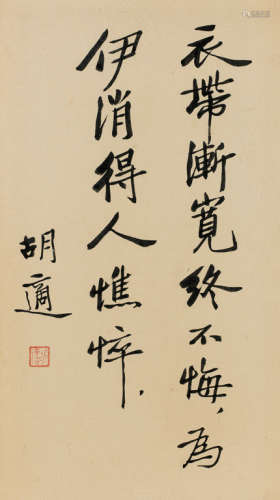 衣帶漸寬終不悔,為
伊消得人憔悴.
胡適